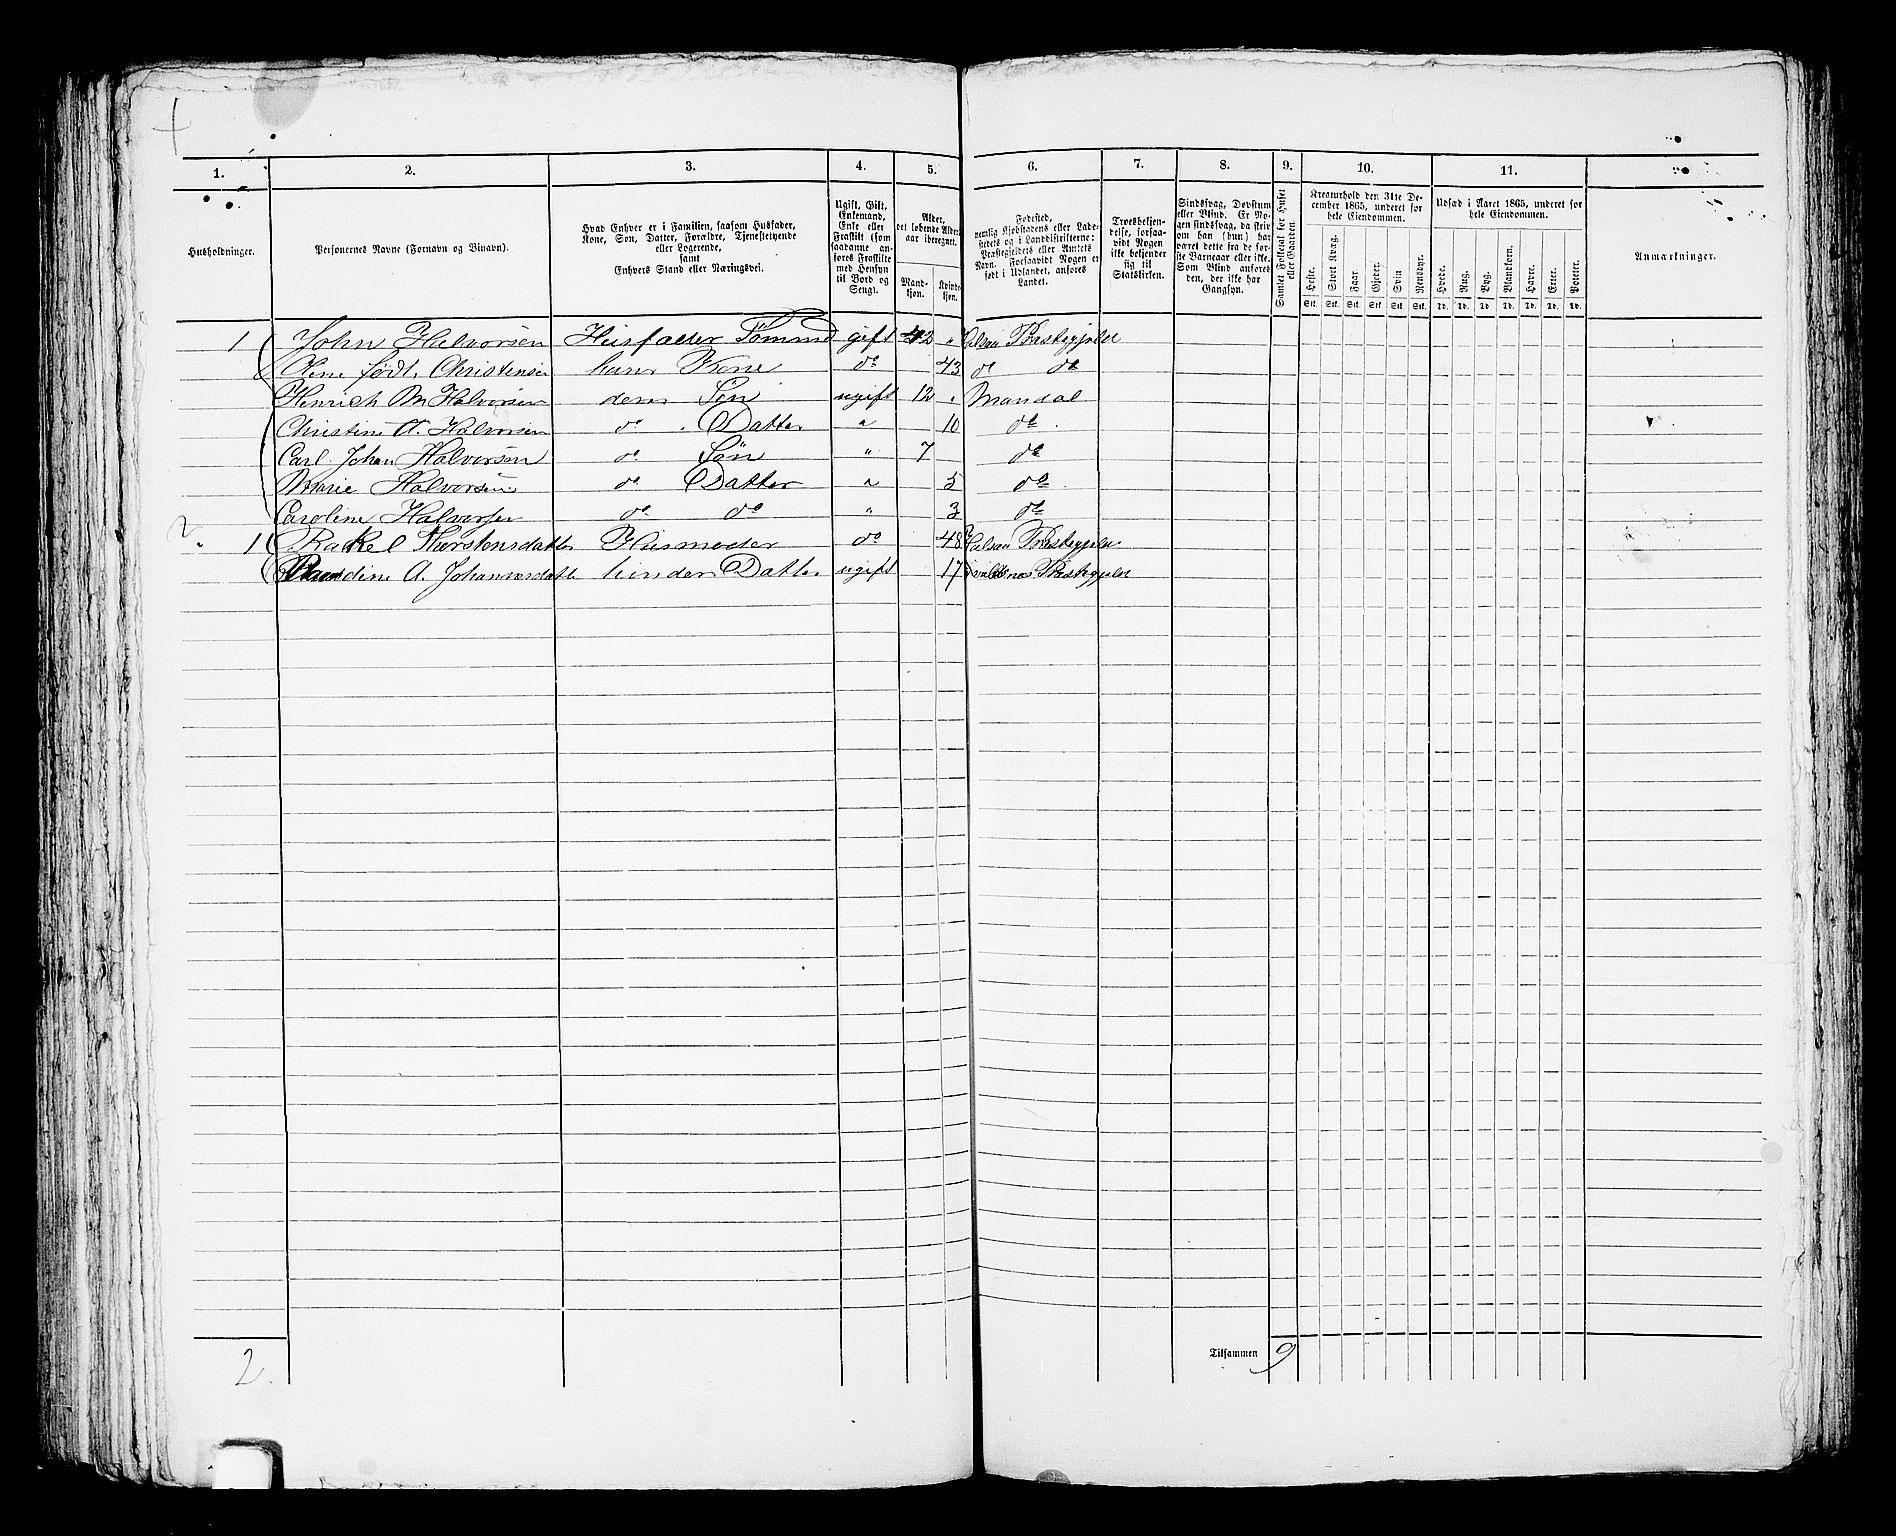 1. 2. 3. 4. 5. 6. 7. 8. 9. 10. 11.
Husholdninger.
Personernes Navne (Fornavn og Binavn).
Hvad Enhver er i Familien, saasom Husfader,
Kone, Søn, Datter, Forældre, Tjenestetyende
eller Logerende,
samt
Enhvers Stand eller Næringsvei.
Ugift, Gift,
Enkemand,
Enke eller
Fraskilt (som
saadanne an-
føres Fraskilte
med Hensyn
til Bord og
Seng).
Alder,
det løbende Alders-
aar iberegnet.
Mand-
kjøn.
Kvinde-
kjøn.
Fødested,
nemlig Kjøbstadens eller Lade-
stedets og i Landdistrikterne:
Præstegjeldets eller Amtets
Navn. Forsaavidt Nogen er
født i Udlandet, anføres
Landet.
Troesbekjen-
delse, forsaa-
vidt Nogen
ikke bekjender
sig til
Statskirken.
Sindssvag, Døvstum
eller Blind. Er No-
gen sindssvag, da skriv
om han (hun) har
været dette fra de for-
ste Barneaar eller ikke.
Som Blind anføres
den, der ikke har
Gangsyn.
Samlet Folketal for Huset
eller Gaarden
Kreaturhold den 31te De-
cember 1865, underet for
hele Eiendommen.
Heste. Stort Kvæg. Faar. Gjeder. Svin Rensdyr.
Stk. Stk. Stk. Stk. Stk. Stk.
Udsæd i Aaret 1865, underet for
hele Eiendommen.
Hvede. Rug. Byg. Blandkorn. Havre. Erter. Poteter.
Td. Td. Td. Td. Td. Td. Td.
Anmærkninger.
1 John Halvorsen Husfader Tømmd gift 42 " Halsaa Præstegjeld
Olene født Christensen hans Kone do 43 do do
Henrich M Halvorsen deres Søn ugift 12 " Mandal
Christine A. Halvorsen do Datter " 10 do
Carl Johan Halvorsen do Søn " 7 do
Marie Halvorsen do Datter " 5 do
Caroline Halvorsen do do " 3 do
1 Rakel Thorstensdatter Husmoder do 48 Halsaa Præstegjeld
A. Johannesdatter hindes Datter ugift 17 Præstegjeld
Tilsammen 9
2.